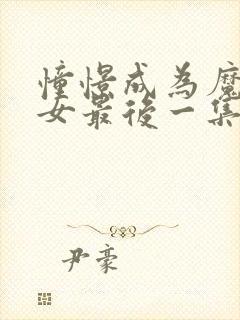 憧憬成為魔
女最後一集
尹豪